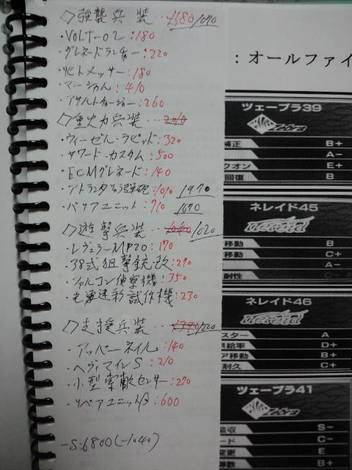 ◇強襲兵装…1380/1090
・VOLT-02:180
・グレネードランチャー:220
・リヒトメッサー:180
・マーシャル:410
・アサルトチャージャー:260
◇重火力兵装…
・ウィーゼル・ラピッド:320
・サワード・カスタム:500
・ECMグレネード:140
1970
・バリアユニット:710
1690
◇遊撃兵装…1020
・レヴェラーMP20:170
・38式狙撃銃改:290
・ファルコン偵察機:350
・光学迷彩試作機:230
◇支援兵装…
・アッパーネイル:140
・ヘヴィマインS:210
・小型索敵センサー:290
・リペアユニットβ:600
-S:6800(-1040)
:オールファイ
ツェーブラ39
補正 B+
A-
クオン E+
回復 B
ネレイド45
移動 B
C+
A-
耐性
ネレイド46
スター A
給率 D+
ア移動 B+
耐久 C+
ツェーブラ41
吸収 S-
ード C-
変更 E
B+